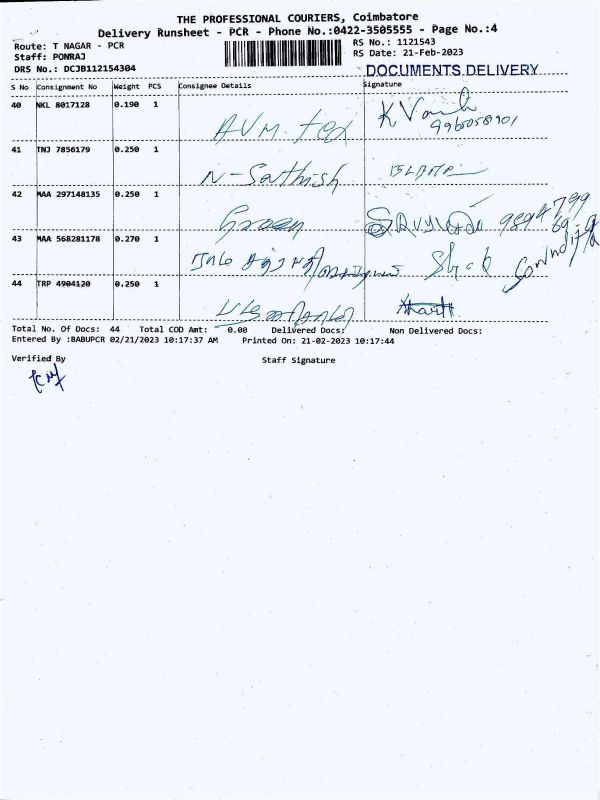 THE PROFESSIONAL COURIERS, Coimbatore
Delivery Runsheet - PCR - Phone No.:0422-3505555 - Page No.:4
Route: T NAGAR - PCR
RS No.: 1121543
Staff: PONRAJ
RS Date: 21-Feb-2023
DRS No.: DCJB112154304
DOCUMENTS DELIVERY
S No Consignment No Weight PCS Consignee Details Signature
40 NKL 8017128 0.190 1 AVM. Tex K
9965058901
41 TNJ 7856179 0.250 1 N-Sathish
42 MAA 297148135 0.250 1 Green
43 MAA 568281178 0.270 1
44 TRP 4904120 0.250 1
Total No. Of Docs: 44 Total COD Amt: 0.00 Delivered Docs: Non Delivered Docs:
Entered By :BABUPCR 02/21/2023 10:17:37 AM Printed On: 21-02-2023 10:17:44
Verified By Staff Signature